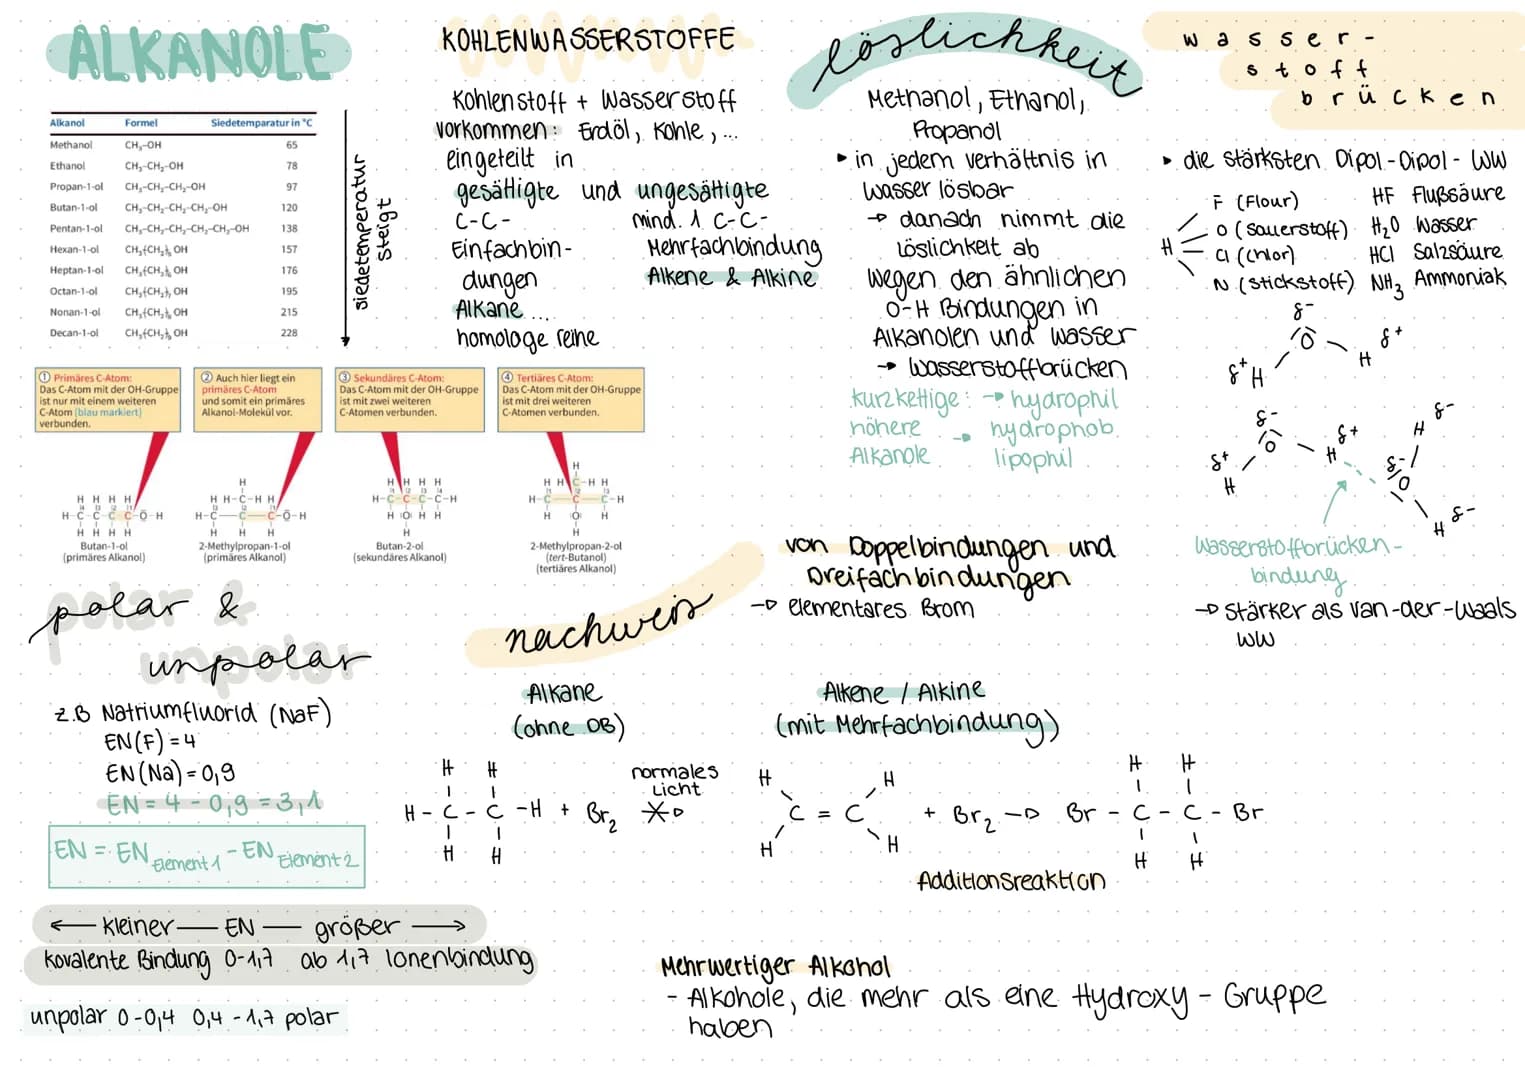 ALKANOLE
Alkanol Formel Siedetemperatur in °C
Methanol CH₃-OH 65
Ethanol CH₃-CH₂-OH 78
Propan-1-ol CH₃-CH₂-CH₂-OH 97
Butan-1-ol CH₃-CH₂-CH₂-CH₂-OH 120
Pentan-1-ol CH₃-CH₂-CH₂-CH₂-CH₂-OH 138
Hexan-1-ol 157
Heptan-1-ol 176
Octan-1-ol 195
Nonan-1-ol 215
Decan-1-ol 228
siedetemperatur
steigt
① Primäres C-Atom:
Das C-Atom mit der OH-Gruppe
ist nur mit einem weiteren
C-Atom (blau markiert)
verbunden.
② Auch hier liegt ein
primäres C-Atom
und somit ein primäres
Alkanol-Molekül vor.
③ Sekundäres C-Atom:
Das C-Atom mit der OH-Gruppe
ist mit zwei weiteren
C-Atomen verbunden.
④ Tertiäres C-Atom:
Das C-Atom mit der OH-Gruppe
ist mit drei weiteren
C-Atomen verbunden.
H H H H
H-C-C-C-C-O-H
H H H H
Butan-1-ol
(primäres Alkanol)
H
H H-C-H H
H-C-C-C-O-H
H H H
2-Methylpropan-1-ol
(primäres Alkanol)
H H H H
H-C-C-C-C-H
H O H H
H
Butan-2-ol
(sekundäres Alkanol)
H
H H-C-H H
H-C-C-C-H
H O H
H
2-Methylpropan-2-ol
(tert-Butanol)
(tertiäres Alkanol)
KOHLENWASSERSTOFFE
Kohlenstoff + Wasserstoff
vorkommen: Erdöl, Kohle, ...
eingeteilt in
gesättigte und ungesättigte
C-C-
Einfachbin-
dungen
Alkane ...
homologe reihe
mind. 1 C-C-
Mehrfachbindung
Alkene & Alkine
löslichkeit
Methanol, Ethanol,
Propanol
▸ in jedem verhältnis in
wasser lösbar
→ danach nimmt die
löslichkeit ab
wegen den ähnlichen
O-H Bindungen in
Alkanolen und wasser
→ wasserstoffbrücken
kurzkettige: → hydrophil
höhere → hydrophob
Alkanole lipophil
wasser-
stoff
brücken
▸ die stärksten Dipol-Dipol-WW
F (Flour) HF Flußsäure
H O (Sauerstoff) H₂O Wasser
Cl (Chlor) HCl Salzsäure
N (Stickstoff) NH₃ Ammoniak
δ-
O δ+
δ+ H H
δ- δ-
O δ+ H
δ+ H δ-
H O
δ-
H
Wasserstoffbrücken-
bindung
→ stärker als van-der-Waals
WW
polar &
unpolar
z.B Natriumfluorid (NaF)
EN(F) = 4
EN(Na) = 0,9
EN = 4 - 0,9 = 3,1
EN = EN Element 1 - EN Element 2
← kleiner — EN — größer →
kovalente Bindung 0-1,7 ab 1,7 Ionenbindung
unpolar 0-0,4 0,4-1,7 polar
nachweis
von Doppelbindungen und
Dreifachbindungen
→ elementares Brom
Alkane
(ohne DB)
H H
H - C - C - H + Br₂
H H
normales
Licht
Alkene / Alkine
(mit Mehrfachbindung)
H H
C = C + Br₂ →
H H
H H
Br - C - C - Br
H H
Additionsreaktion
Mehrwertiger Alkohol
- Alkohole, die mehr als eine Hydroxy-Gruppe
haben